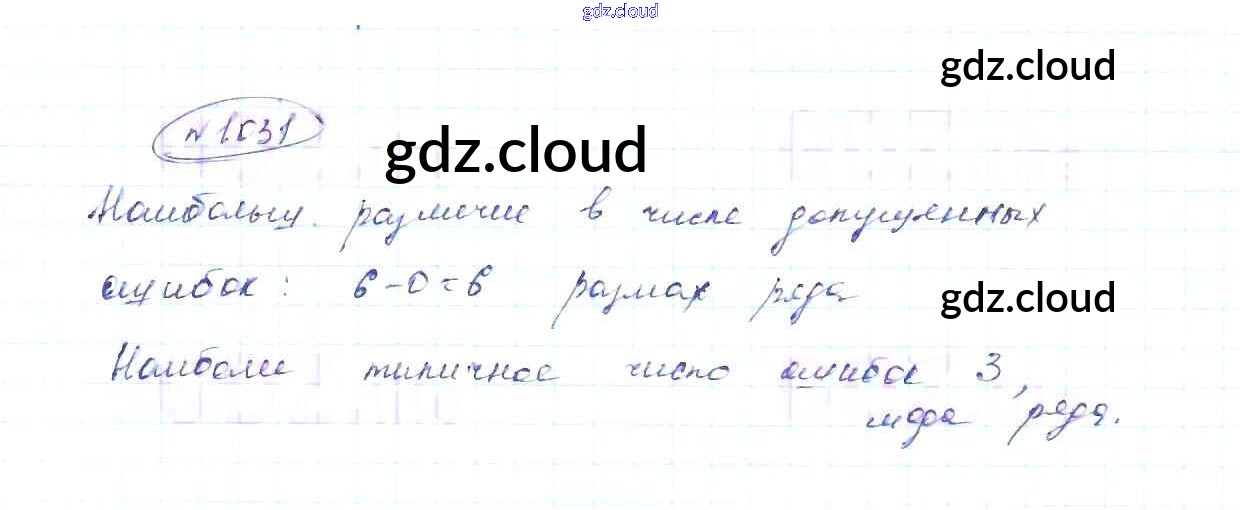 gdz.cloud
gdz.cloud
№ 1031
gdz.cloud
Наибольш. различие в числе допущенных
ошибок: 6-0=6 размах ряда
gdz.cloud
Наиболее типичное число ошибок 3,
мода ряда.